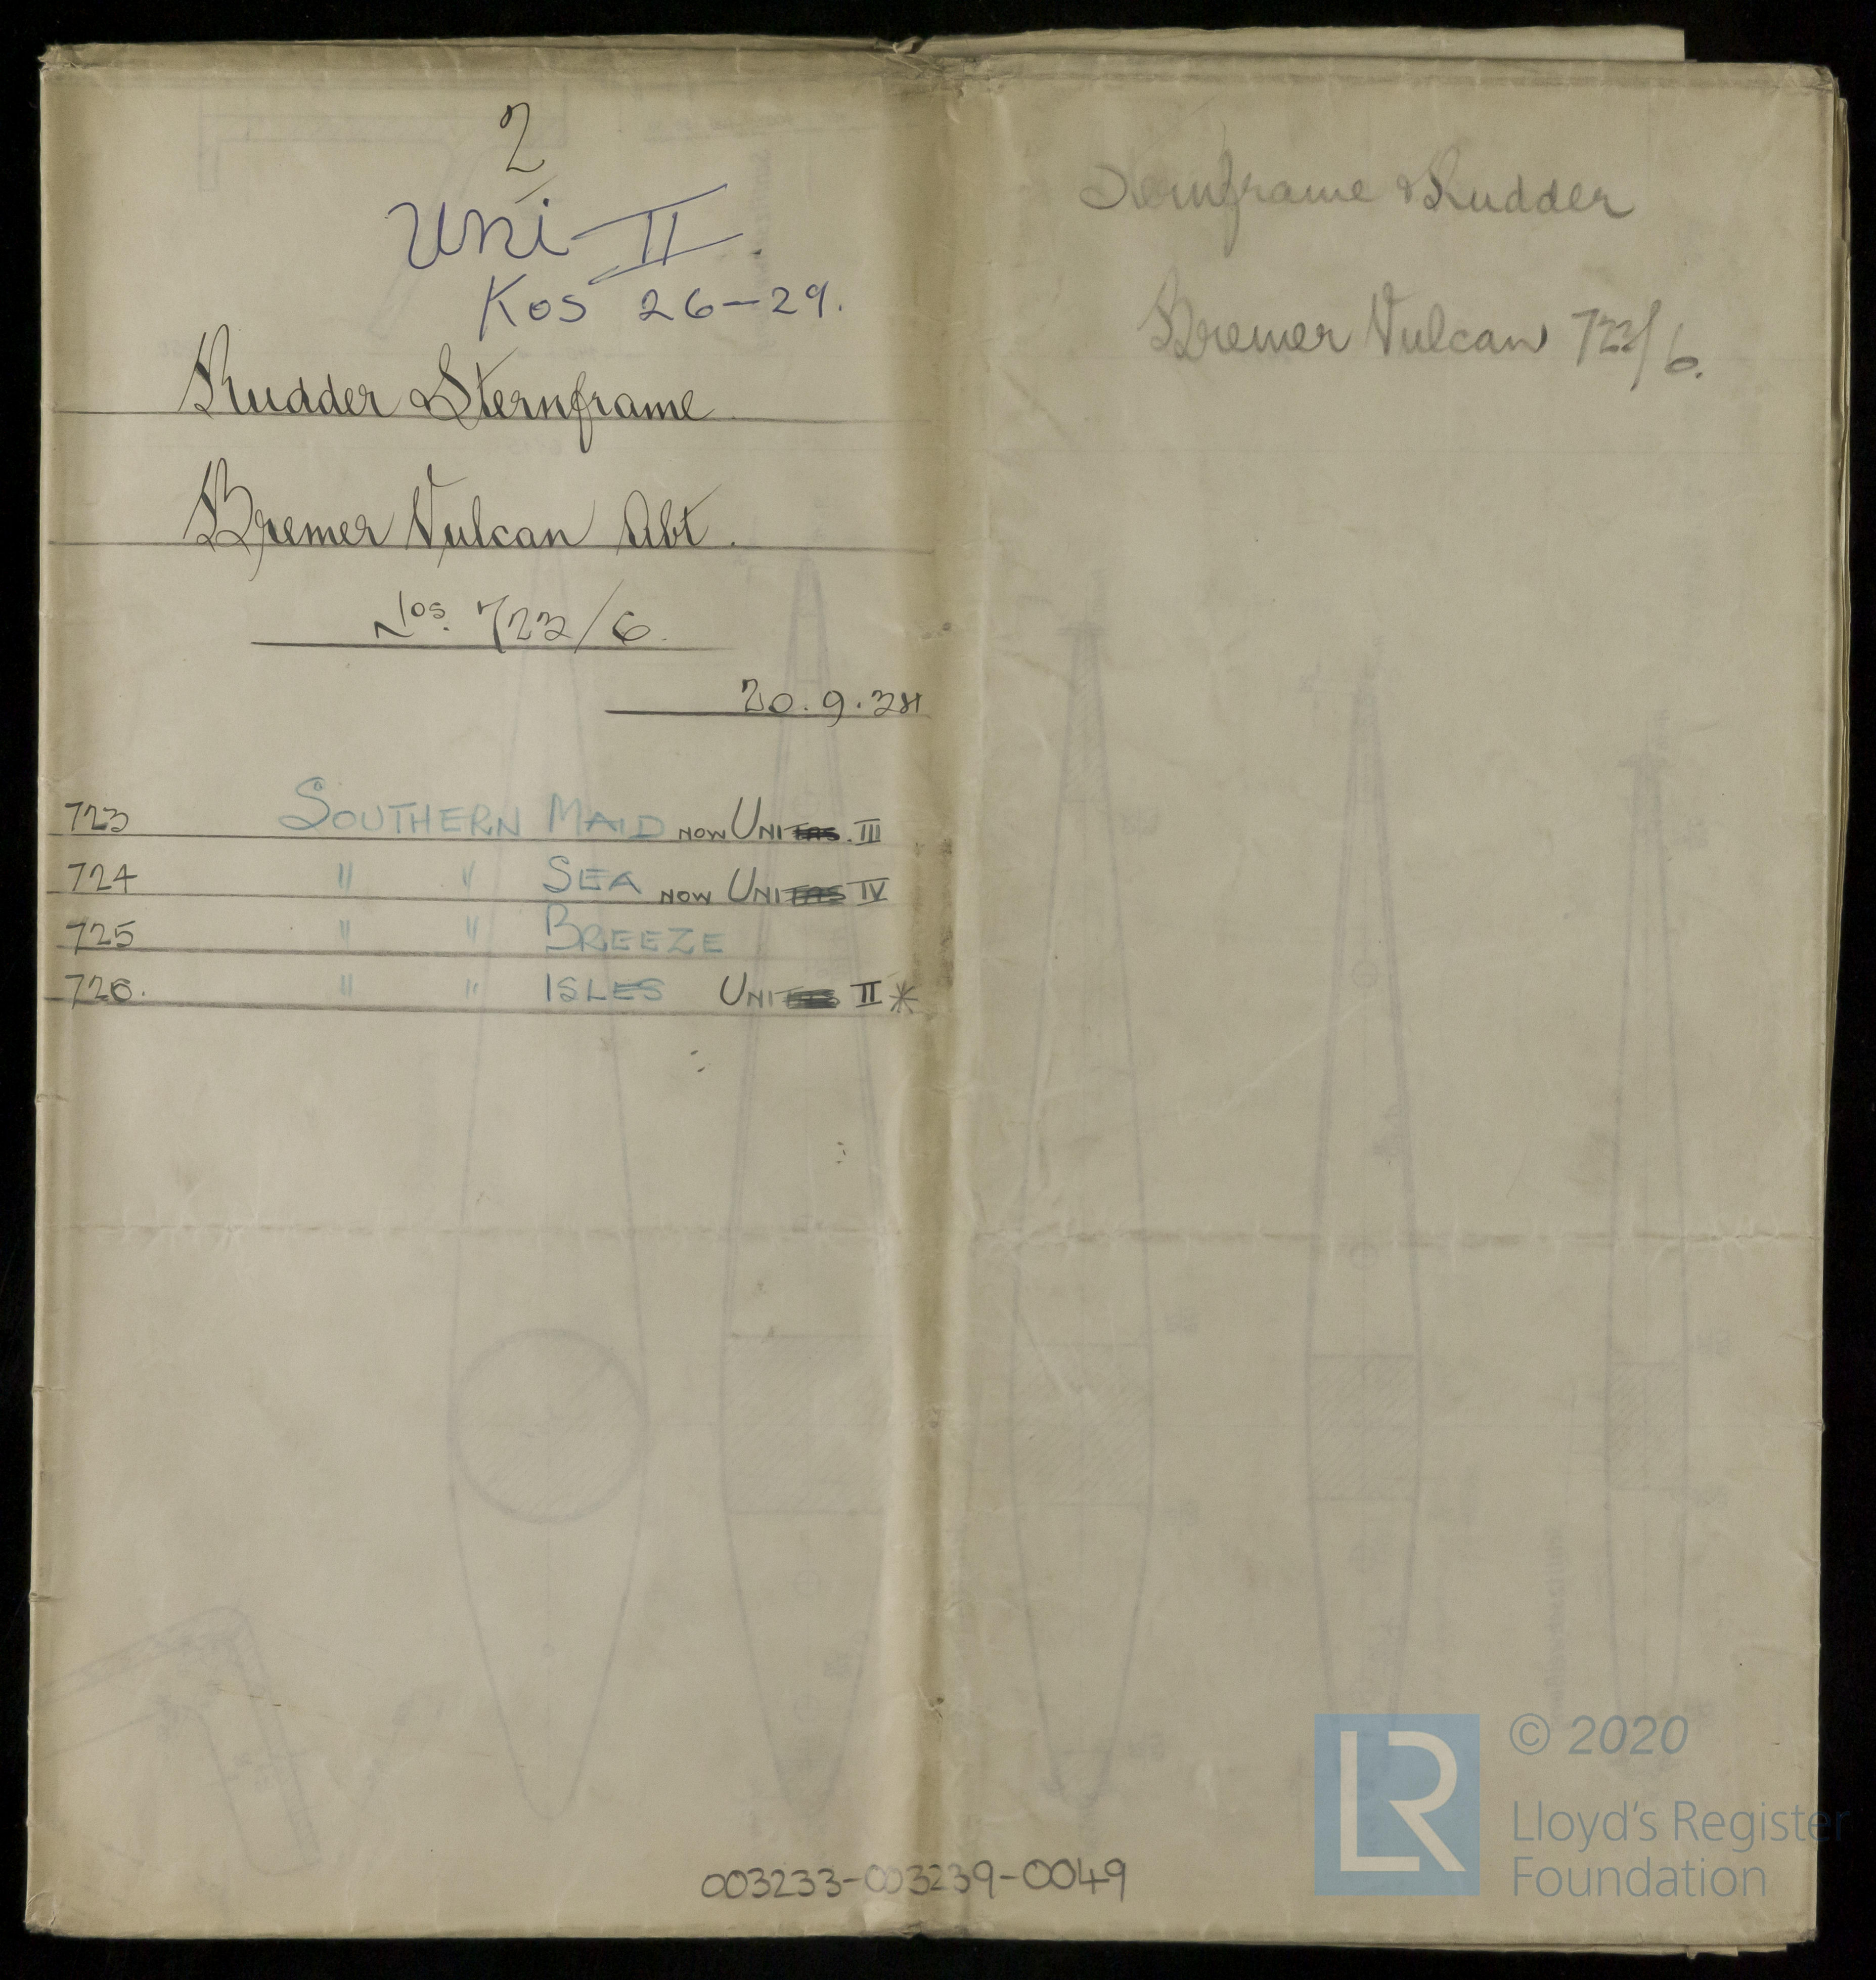 2
Uni-II.
Kos 26-29.
Rudder & Sternframe
Bremer Vulcan Abt.
Nos. 723/6.
20.9.34
723 SOUTHERN MAID NOW UNITAS. III
724 " " SEA NOW UNITAS IV
725 " " BREEZE
726. " " ISLES UNITAS II *
Sternframe & Rudder
Bremer Vulcan 723/6.
003233-003239-0049
LR
© 2020
Lloyd's Register
Foundation